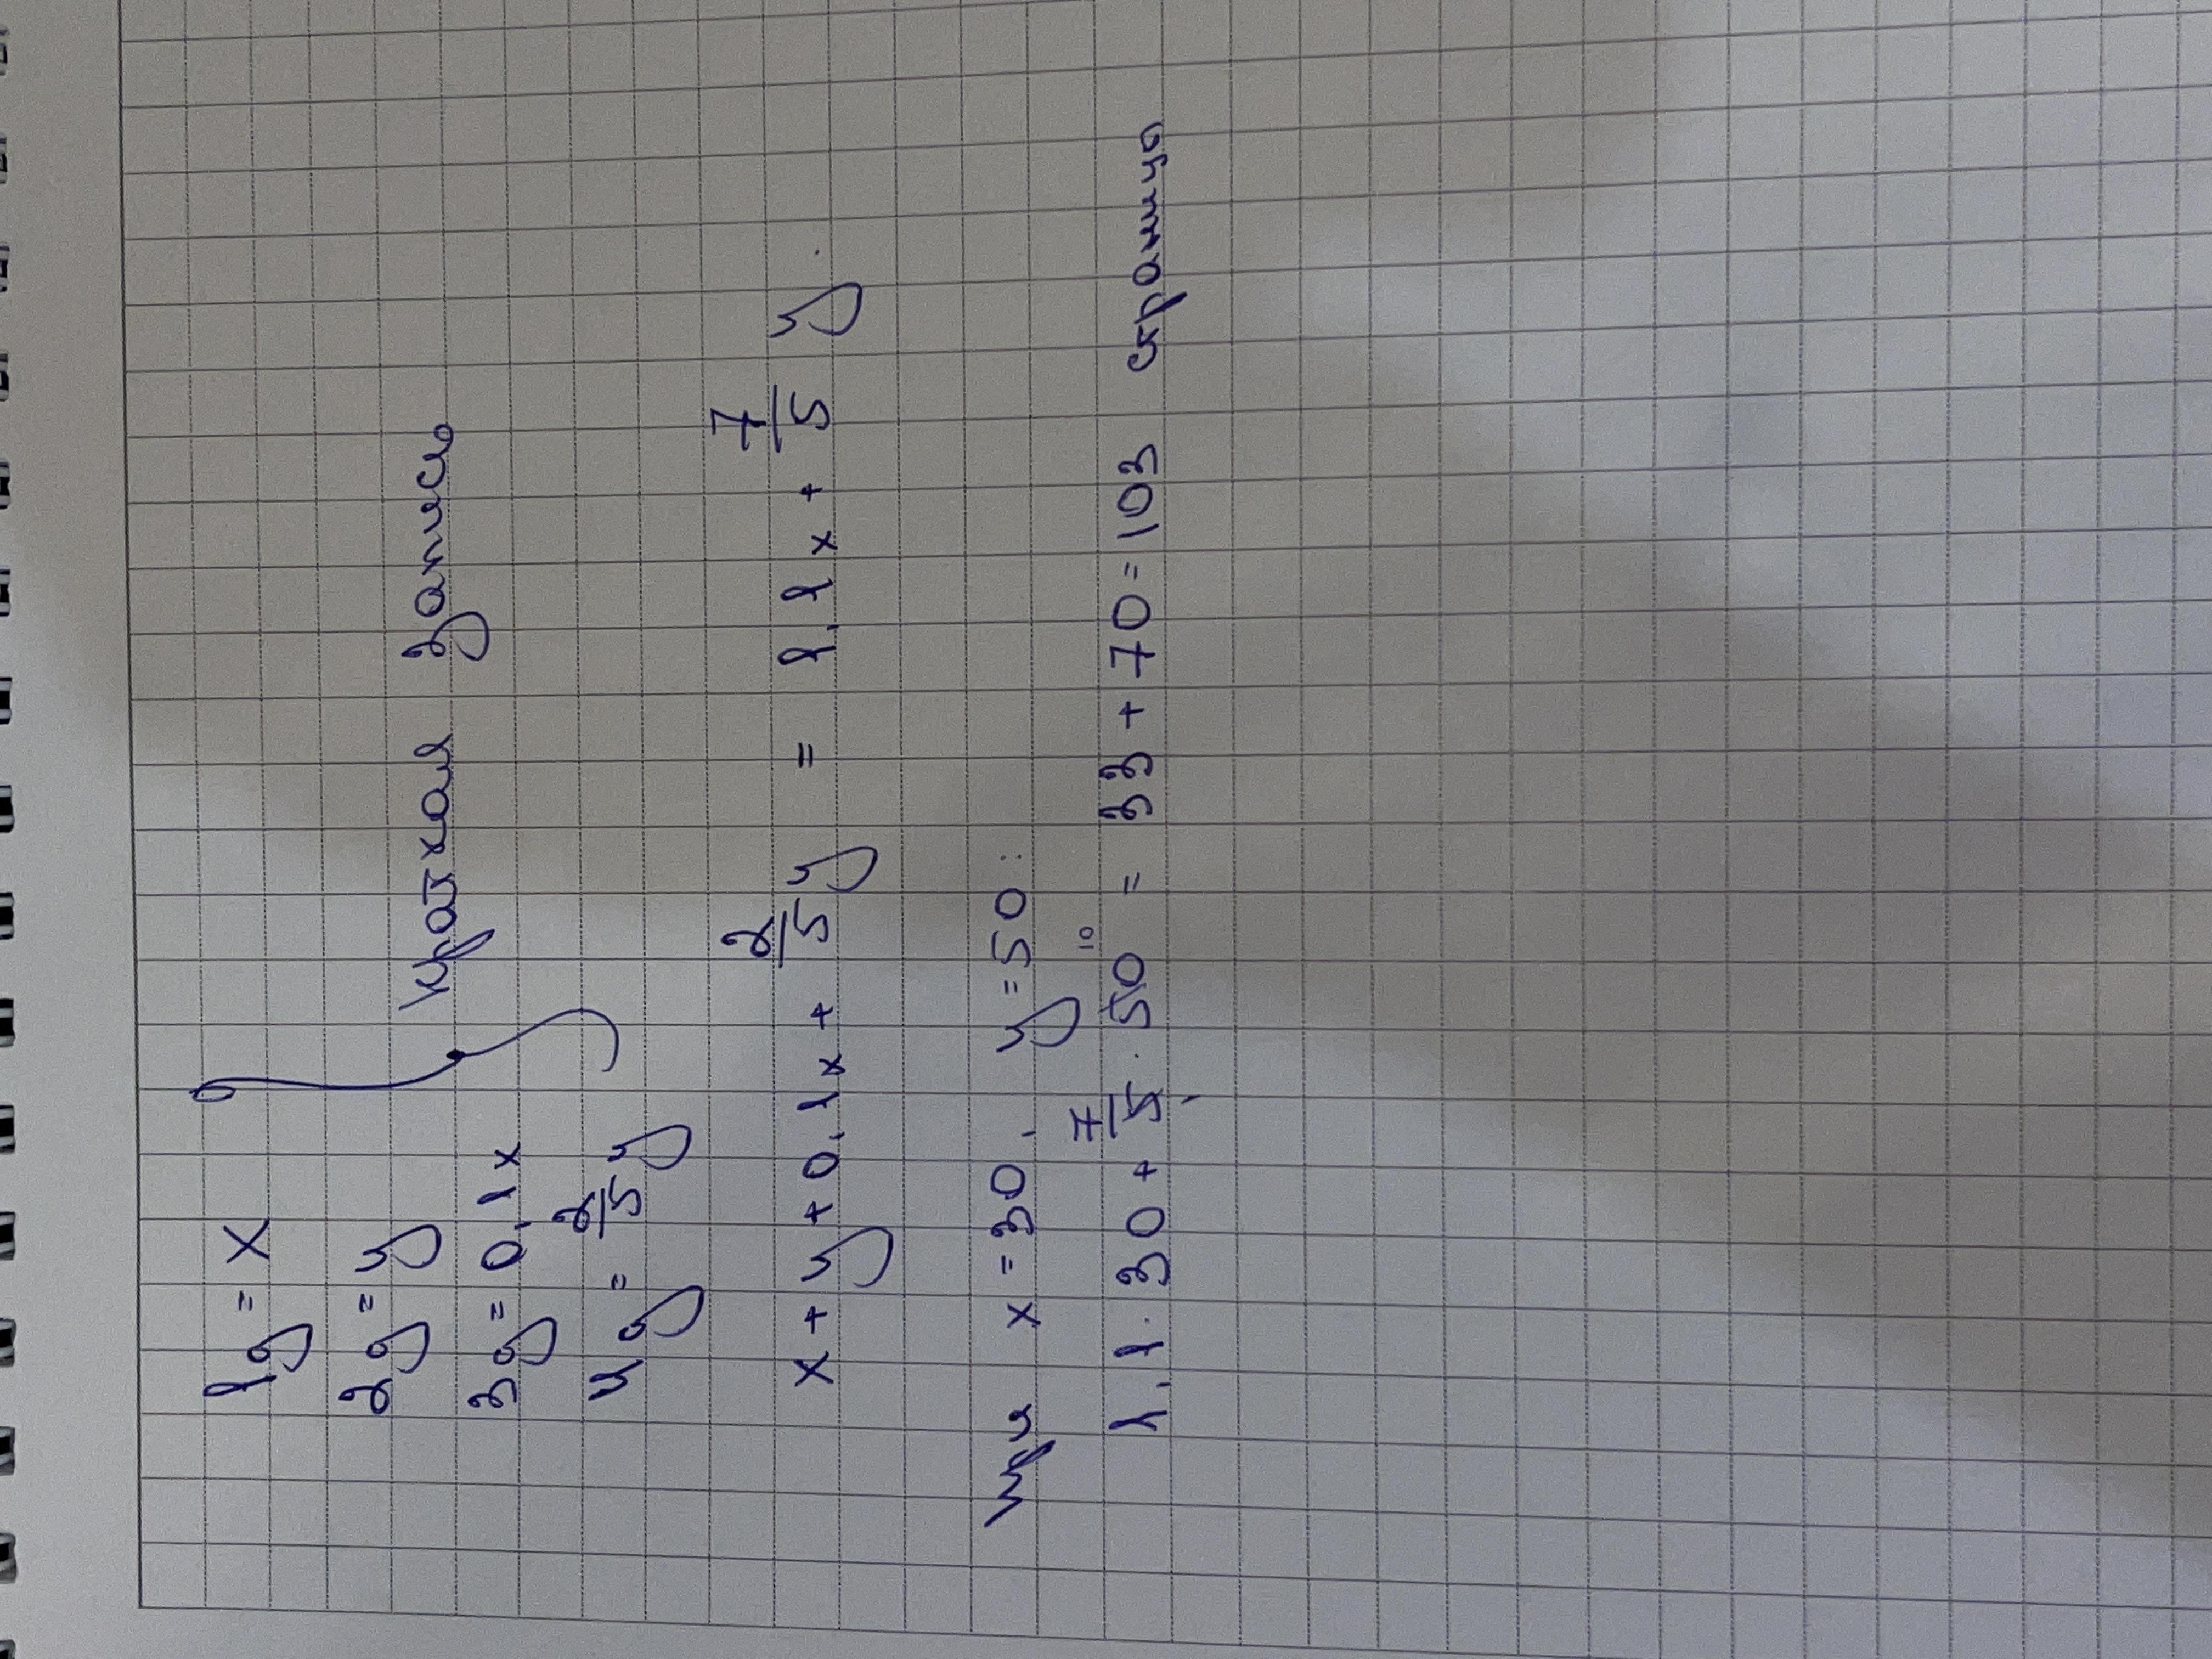 1д = x
2д = y
3д = 0,1x
4д = 2/5 y
Краткая запись
x + y + 0,1x + 2/5 y = 1,1x + 7/5 y
При x = 30, y = 50:
1,1 · 30 + 7/5 · 50 10 = 33 + 70 = 103 страницы